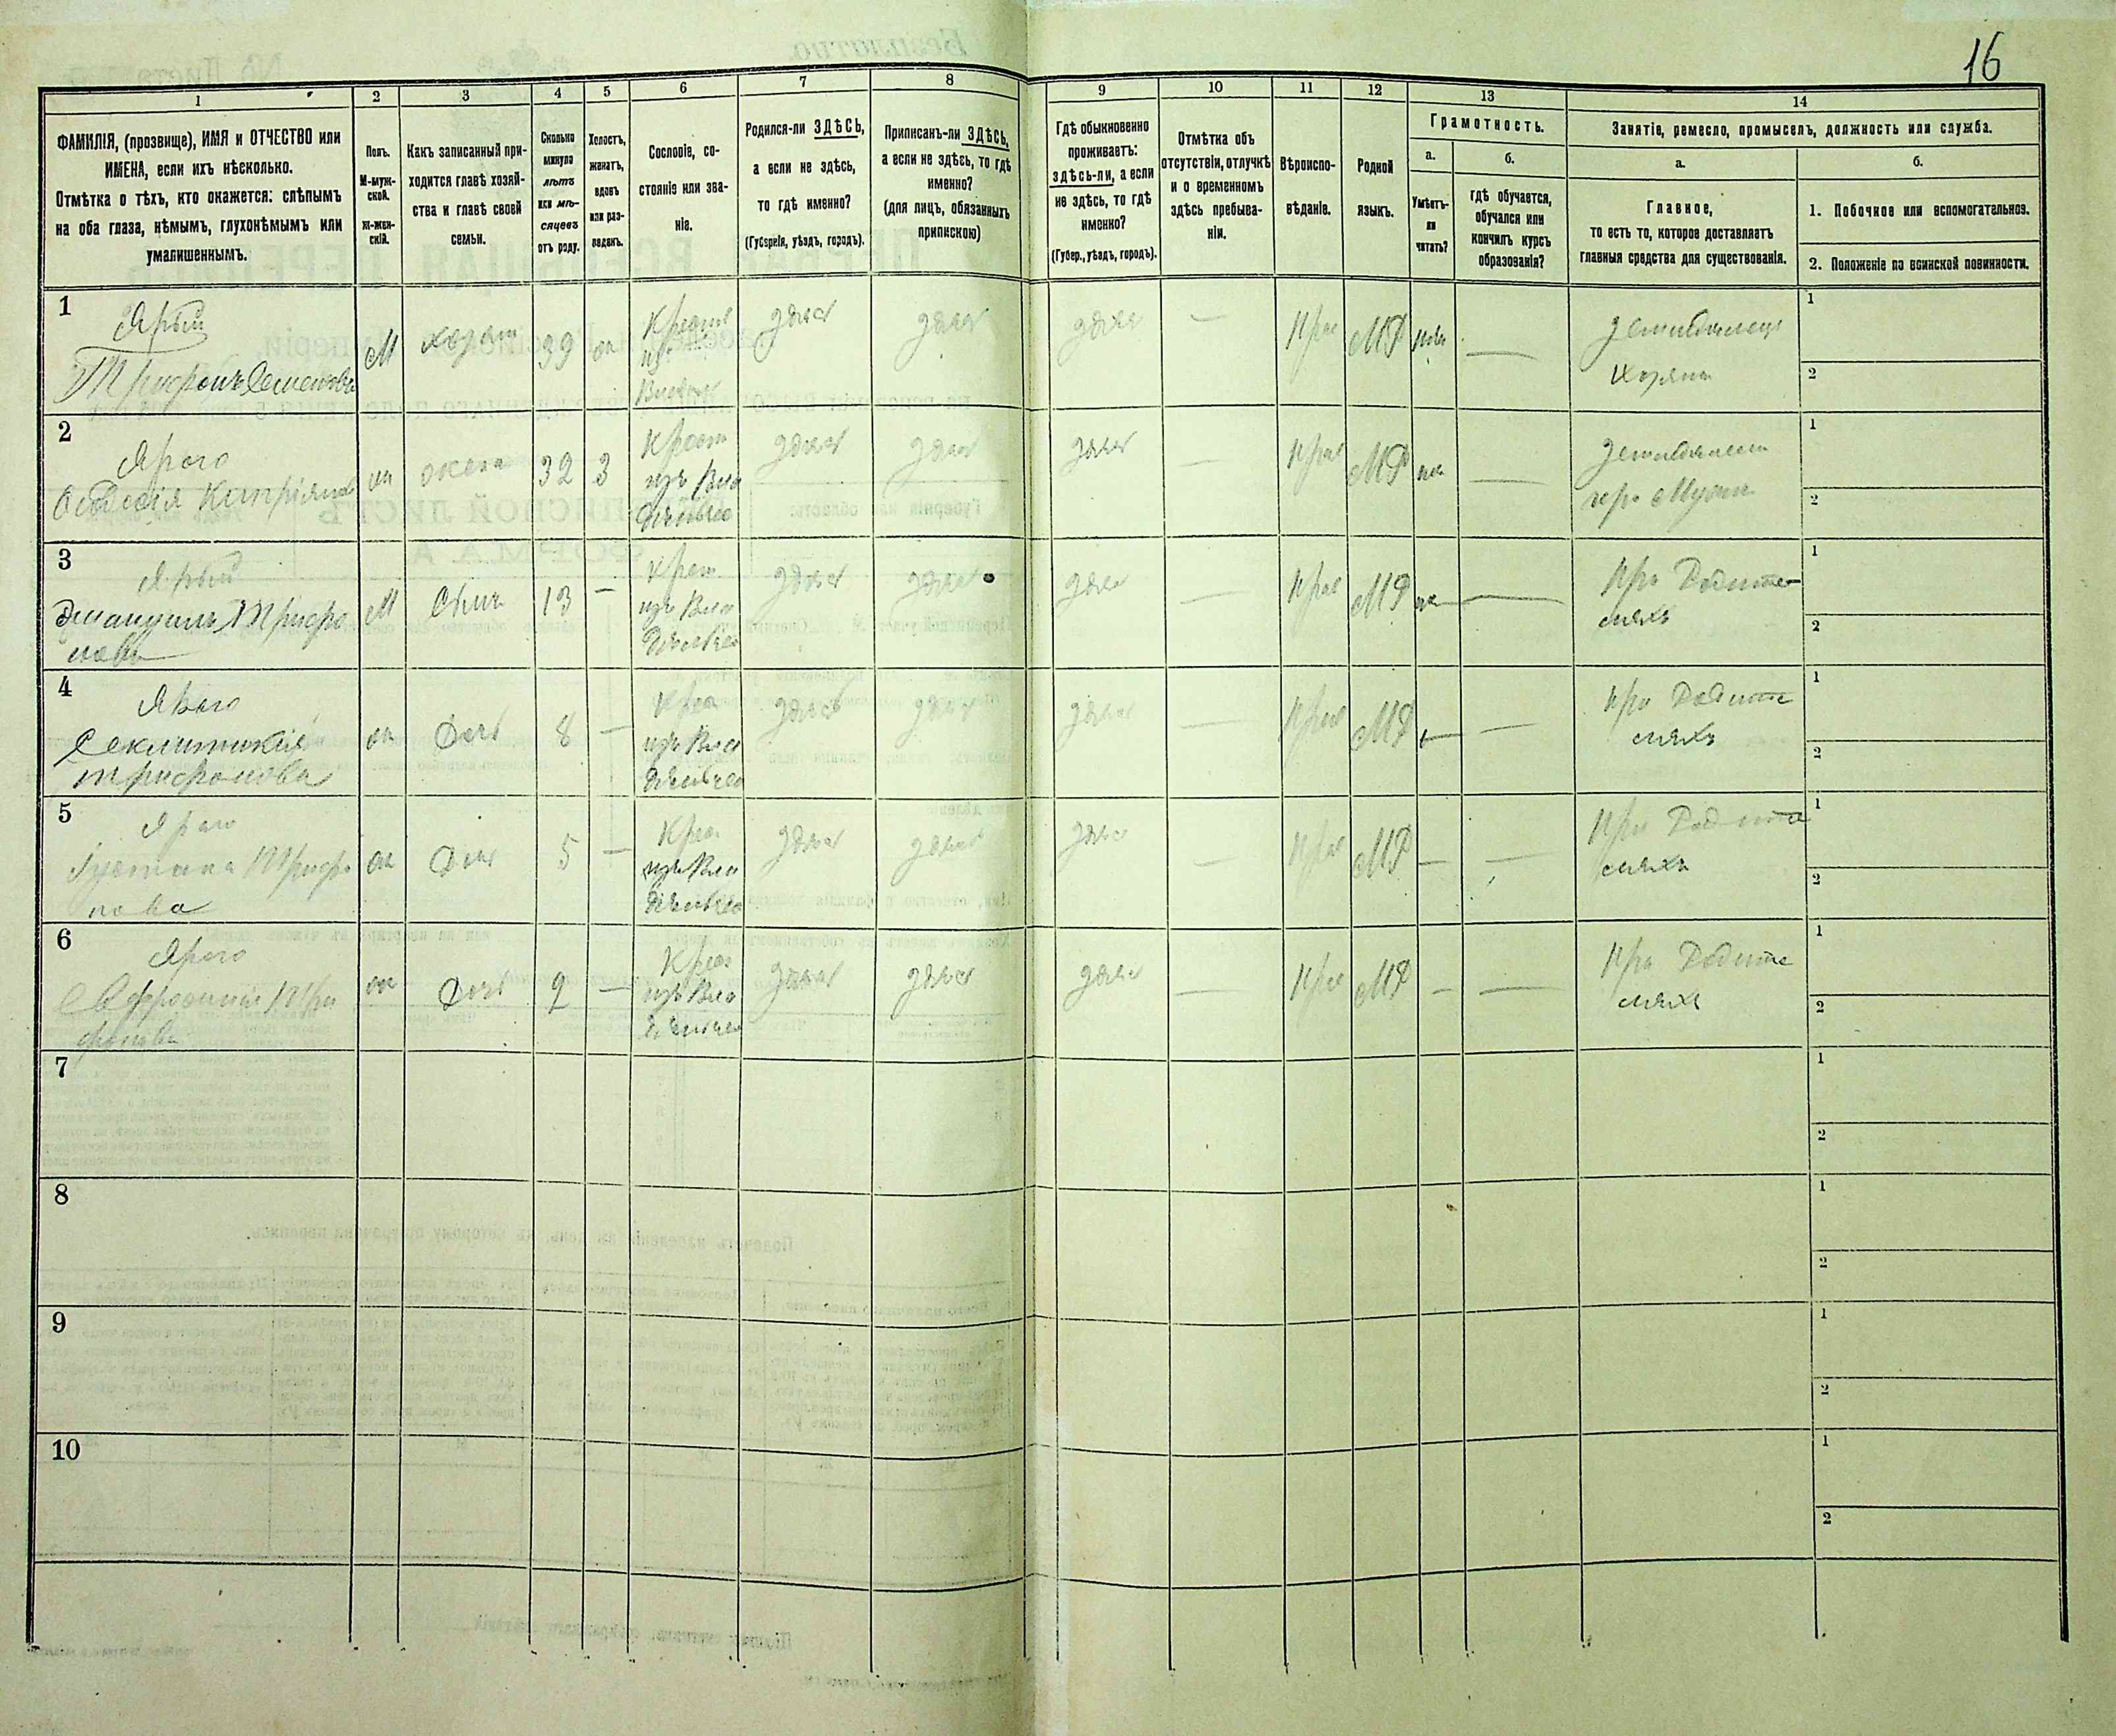 16
1 2 3 4 5 6 7 8 9 10 11 12 13 14
ФАМИЛІЯ, (прозвище), ИМЯ и ОТЧЕСТВО или
ИМЕНА, если ихъ нѣсколько.
Отмѣтка о тѣхъ, кто окажется: слѣпымъ
на оба глаза, нѣмымъ, глухонѣмымъ или
умалишеннымъ.
Полъ.
М-муж-
ской.
Ж-жен-
скій.
Какъ записанный при-
ходится главѣ хозяй-
ства и главѣ своей
семьи.
Сколько
минуло
лѣтъ
или мѣ-
сяцевъ
отъ роду.
Холостъ,
женатъ,
вдовъ
или раз-
веденъ.
Сословіе, со-
стояніе или зва-
ніе.
Родился-ли ЗДѢСЬ,
а если не здѣсь,
то гдѣ именно?
(Губернія, уѣздъ, городъ).
Приписанъ-ли ЗДѢСЬ,
а если не здѣсь, то гдѣ
именно?
(для лицъ, обязанныхъ
припискою)
Гдѣ обыкновенно
проживаетъ:
здѣсь-ли, а если
не здѣсь, то гдѣ
именно?
(Губер., уѣздъ, городъ).
Отмѣтка объ
отсутствіи, отлучкѣ
и о временномъ
здѣсь пребыва-
ніи.
Вѣроиспо-
вѣданіе.
Родной
языкъ.
Грамотность.
а.
Умѣетъ-
ли
читать?
б.
гдѣ обучается,
обучался или
кончилъ курсъ
образованія?
Занятіе, ремесло, промыселъ, должность или служба.
а.
Главное,
то есть то, которое доставляетъ
главныя средства для существованія.
б.
1. Побочное или вспомогательное.
2. Положеніе по воинской повинности.
1
Ярый
Трифонъ Семеновъ
М
хозяин
39
Крест
из
здѣсь
здѣсь
здѣсь
—
Прав
МР
—
Земледѣлец
Хозяин
1
2
2
Ярого
жена
32
3
Крест
изъ Вла
дѣльчес
здѣсь
здѣсь
здѣсь
—
Прав
МР
—
при Мужи
1
2
3
Ярый
Эмануилъ Трифо
новъ
М
Сынъ
13
—
Крест
изъ Вла
дѣльчес
здѣсь
здѣсь
здѣсь
—
Прав
МР
—
При Родите
ляхъ
1
2
4
Ярого
Секлитикія
Трифонова
Дочь
8
—
Крес
изъ Вла
дѣльчес
здѣсь
здѣсь
здѣсь
—
Прав
МР
—
—
При Родите
ляхъ
1
2
5
Ярого
Іустина Трифо
нова
Дочь
5
—
Крес
изъ Вла
дѣльчес
здѣсь
здѣсь
здѣсь
—
Прав
МР
—
—
При Родите
ляхъ
1
2
6
Ярого
Евфросинія Три
фонова
Дочь
2
—
Крес
изъ Вла
дѣльчес
здѣсь
здѣсь
здѣсь
—
Прав
МР
—
—
При Родите
ляхъ
1
2
7
1
2
8
1
2
9
1
2
10
1
2